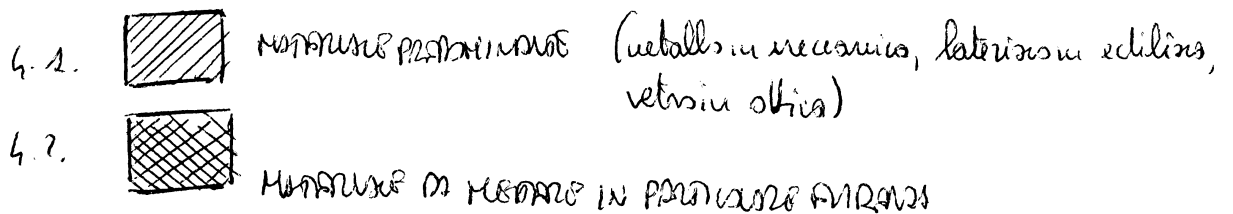 4.1. MATERIALE PREDOMINANTE (metallo in meccanica, laterizio in edilizia,
vetro in ottica)
4.2.
MATERIALE DA METTERE IN PARTICOLARE EVIDENZA